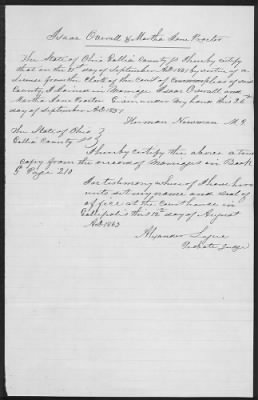 Isaac Overall & Martha Jane Proctor
The State of Ohio Gallia County SS I hereby certify
that on the 21st day of September AD 1851 by virtue of a
license from the Clerk of the court of common pleas of said
County I Joined in Marriage Isaac Overall and
Martha Jane Proctor Given under my hand this 26
day of September AD 1851
Herman Newman M.G.
The State of Ohio
Gallia County SS
I hereby certify the above a true
copy from the record of Marriages in Book
Page 210
In testimony whereof I have here
unto set my name and seal of
office at the Courthouse in
Gallipolis this 12th day of August
AD 1863
Alexander
Probate Judge